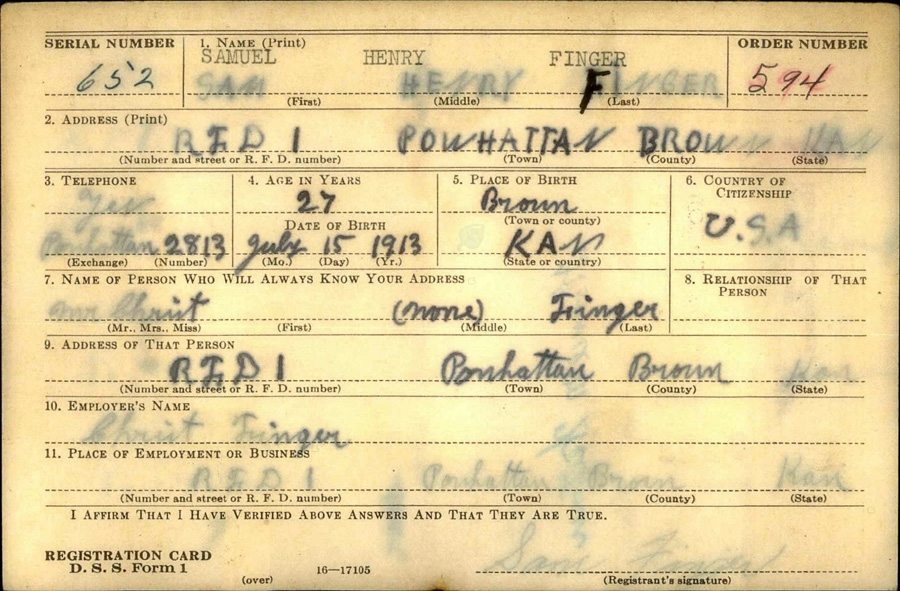 SERIAL NUMBER 1. NAME (Print) ORDER NUMBER
SAMUEL HENRY FINGER
652 SAM HENRY FINGER 594
(First) (Middle) (Last)
2. ADDRESS (Print)
RFD 1 POWHATTAN BROWN KAN
(Number and street or R. F. D. number) (Town) (County) (State)
3. TELEPHONE 4. AGE IN YEARS 5. PLACE OF BIRTH 6. COUNTRY OF CITIZENSHIP
Yes 27 Brown U.S.A
DATE OF BIRTH (Town or county)
Powhattan 2813 July 15 1913 KAN
(Exchange) (Number) (Mo.) (Day) (Yr.) (State or country)
7. NAME OF PERSON WHO WILL ALWAYS KNOW YOUR ADDRESS 8. RELATIONSHIP OF THAT PERSON
Mr Christ (none) Finger
(Mr., Mrs., Miss) (First) (Middle) (Last)
9. ADDRESS OF THAT PERSON
RFD 1 Powhattan Brown Kan
(Number and street or R. F. D. number) (Town) (County) (State)
10. EMPLOYER'S NAME
Christ Finger
11. PLACE OF EMPLOYMENT OR BUSINESS
RFD 1 Powhattan Brown Kan
(Number and street or R. F. D. number) (Town) (County) (State)
I AFFIRM THAT I HAVE VERIFIED ABOVE ANSWERS AND THAT THEY ARE TRUE.
REGISTRATION CARD
D. S. S. Form 1 16—17105 Sam Finger
(over) (Registrant's signature)